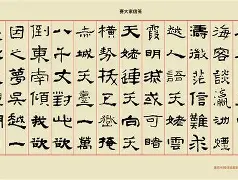 海客談瀛洲煙
濤微茫信難求
越人語天姥雲
霞明滅或可睹
天姥連天向天
橫勢拔五嶽掩
赤城天台一萬
八千丈對此欲
倒東南傾我欲
因之夢吳越一